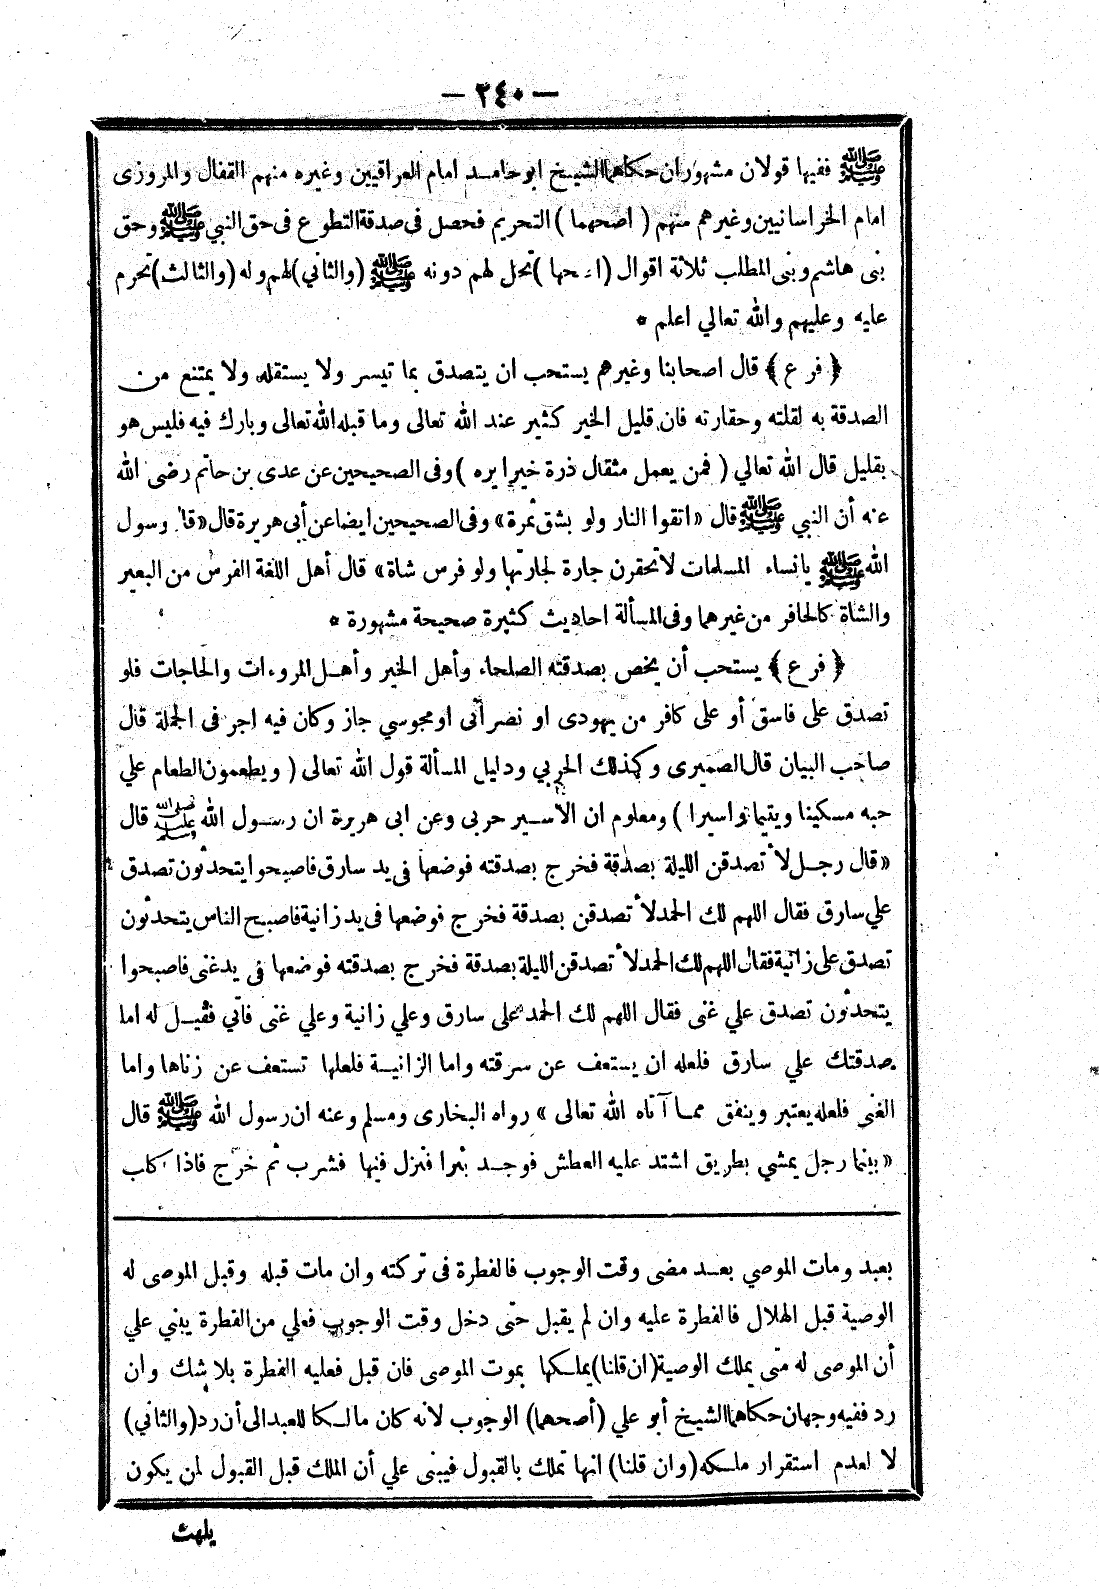 — ٢٤٠ —
ﷺ ففيها قولان مشهوران حكاهما الشيخ ابو حامد امام العراقيين وغيره منهم القفال والمروزى
امام الخراسانيين وغيرهم منهم ( اصحهما ) التحريم فحصل فى صدقة التطوع فى حق النبي ﷺ وحق
بنى هاشم وبنى المطلب ثلاثة اقوال (اصحها) تحل لهم دونه ﷺ (والثاني) لهم وله (والثالث) تحرم
عليه وعليهم والله تعالي اعلم *
﴿ فرع ﴾ قال اصحابنا وغيرهم يستحب ان يتصدق بما تيسر ولا يستقله ولا يمتنع من
الصدقة به لقلته وحقارته فان قليل الخير كثير عند الله تعالى وما قبله الله تعالى وبارك فيه فليس هو
بقليل قال الله تعالي ( فمن يعمل مثقال ذرة خيرا يره ) وفى الصحيحين عن عدى بن حاتم رضى الله
عنه أن النبي ﷺ قال «اتقوا النار ولو بشق تمرة» وفى الصحيحين ايضا عن أبى هريرة قال «قال رسول
الله ﷺ يانساء المسلمات لاتحقرن جارة لجارتها ولو فرس شاة» قال أهل اللغة الفرس من البعير
والشاة كالحافر من غيرهما وفى المسألة احاديث كثيرة صحيحة مشهورة *
﴿ فرع ﴾ يستحب أن يخص بصدقته الصلحاء وأهل الخير وأهل المروءات والحاجات فلو
تصدق على فاسق أو على كافر من يهودى او نصرانى او مجوسي جاز وكان فيه اجر فى الجملة قال
صاحب البيان قال الصميرى وكذلك الحربي ودليل المسألة قول الله تعالى ( ويطعمون الطعام علي
حبه مسكينا ويتيما واسيرا ) ومعلوم ان الأسير حربى وعن ابى هريرة ان رسول الله ﷺ قال
«قال رجل لأتصدقن الليلة بصدقة فخرج بصدقته فوضعها فى يد سارق فاصبحوا يتحدثون تصدق
علي سارق فقال اللهم لك الحمد لأتصدقن بصدقة فخرج فوضعها فى يد زانية فاصبح الناس يتحدثون
تصدق على زانية فقال اللهم لك الحمد لأتصدقن الليلة بصدقة فخرج بصدقته فوضعها في يد غنى فاصبحوا
يتحدثون تصدق علي غنى فقال اللهم لك الحمد على سارق وعلي زانية وعلي غنى فأتي فقيل له اما
صدقتك علي سارق فلعله ان يستعف عن سرقته واما الزانية فلعلها تستعف عن زناها واما
الغني فلعله يعتبر وينفق مما آتاه الله تعالى» رواه البخارى ومسلم وعنه ان رسول الله ﷺ قال
«بينما رجل يمشي بطريق اشتد عليه العطش فوجد بئرا فنزل فيها فشرب ثم خرج فاذا كلب
بعبد ومات الموصي بعد مضى وقت الوجوب فالفطرة فى تركته وان مات قبله وقبل الموصى له
الوصية قبل الهلال فالفطرة عليه وان لم يقبل حتى دخل وقت الوجوب فعلي من الفطرة يبني علي
أن الموصى له متى يملك الوصية (ان قلنا) يملكها بموت الموصى فان قبل فعليه الفطرة بلا شك وان
رد ففيه وجهان حكاهما الشيخ أبو علي (أصحهما) الوجوب لانه كان مالكا للعبد الى أن رد (والثاني)
لا لعدم استقرار ملكه (وان قلنا) انها تملك بالقبول فيبنى علي أن الملك قبل القبول لمن يكون
يلهث